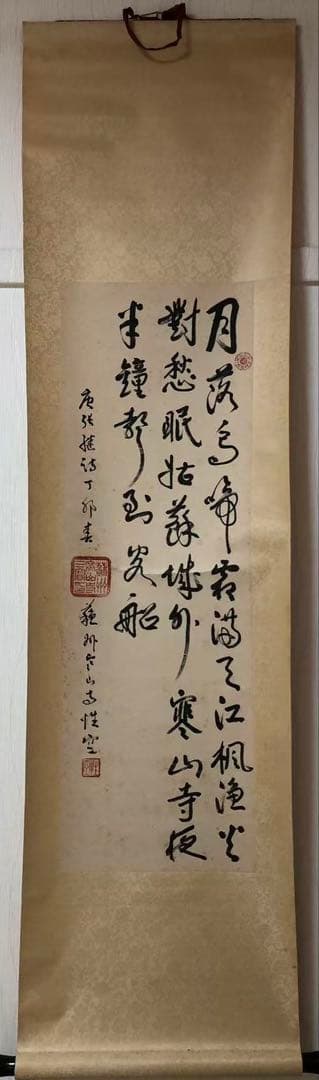 月落烏啼霜滿天江楓漁火
對愁眠姑蘇城外寒山寺夜
半鐘聲到客船
唐張繼詩丁卯春
蘇州寒山寺性空